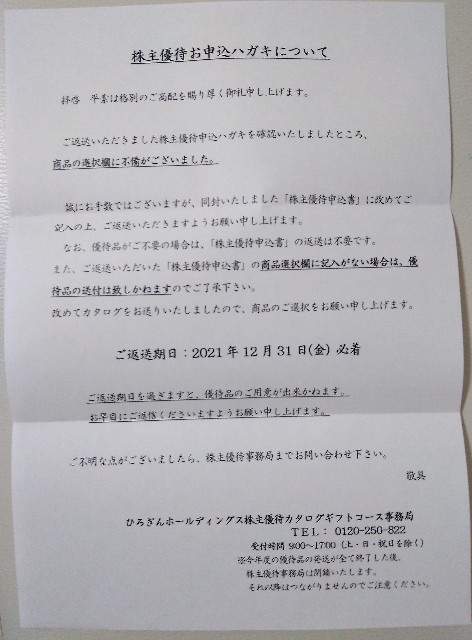 株主優待お申込ハガキについて
拝啓　平素は格別のご高配を賜り厚く御礼申し上げます。
ご返送いただきました株主優待申込ハガキを確認いたしましたところ、
商品の選択欄に不備がございました。
誠にお手数ではございますが、同封いたしました「株主優待申込書」に改めてご
記入の上、ご返送いただきますようお願い申し上げます。
なお、優待品がご不要の場合は、「株主優待申込書」の返送は不要です。
また、ご返送いただいた「株主優待申込書」の商品選択欄に記入がない場合は、優
待品の送付は致しかねますのでご了承下さい。
改めてカタログをお送りいたしましたので、商品のご選択をお願い申し上げます。
ご返送期日：2021年12月31日(金) 必着
ご返送期日を過ぎますと、優待品のご用意が出来かねます。
お早目にご返信くださいますようお願い申し上げます。
ご不明な点がございましたら、株主優待事務局までお問い合わせ下さい。
敬具
ひろぎんホールディングス株主優待カタログギフトコース事務局
TEL： 0120-250-822
受付時間 9:00～17:00（土・日・祝日を除く）
※今年度の優待品の発送が全て終了した後、
株主優待事務局は閉鎖いたします。
それ以降はつながりませんのでご注意ください。